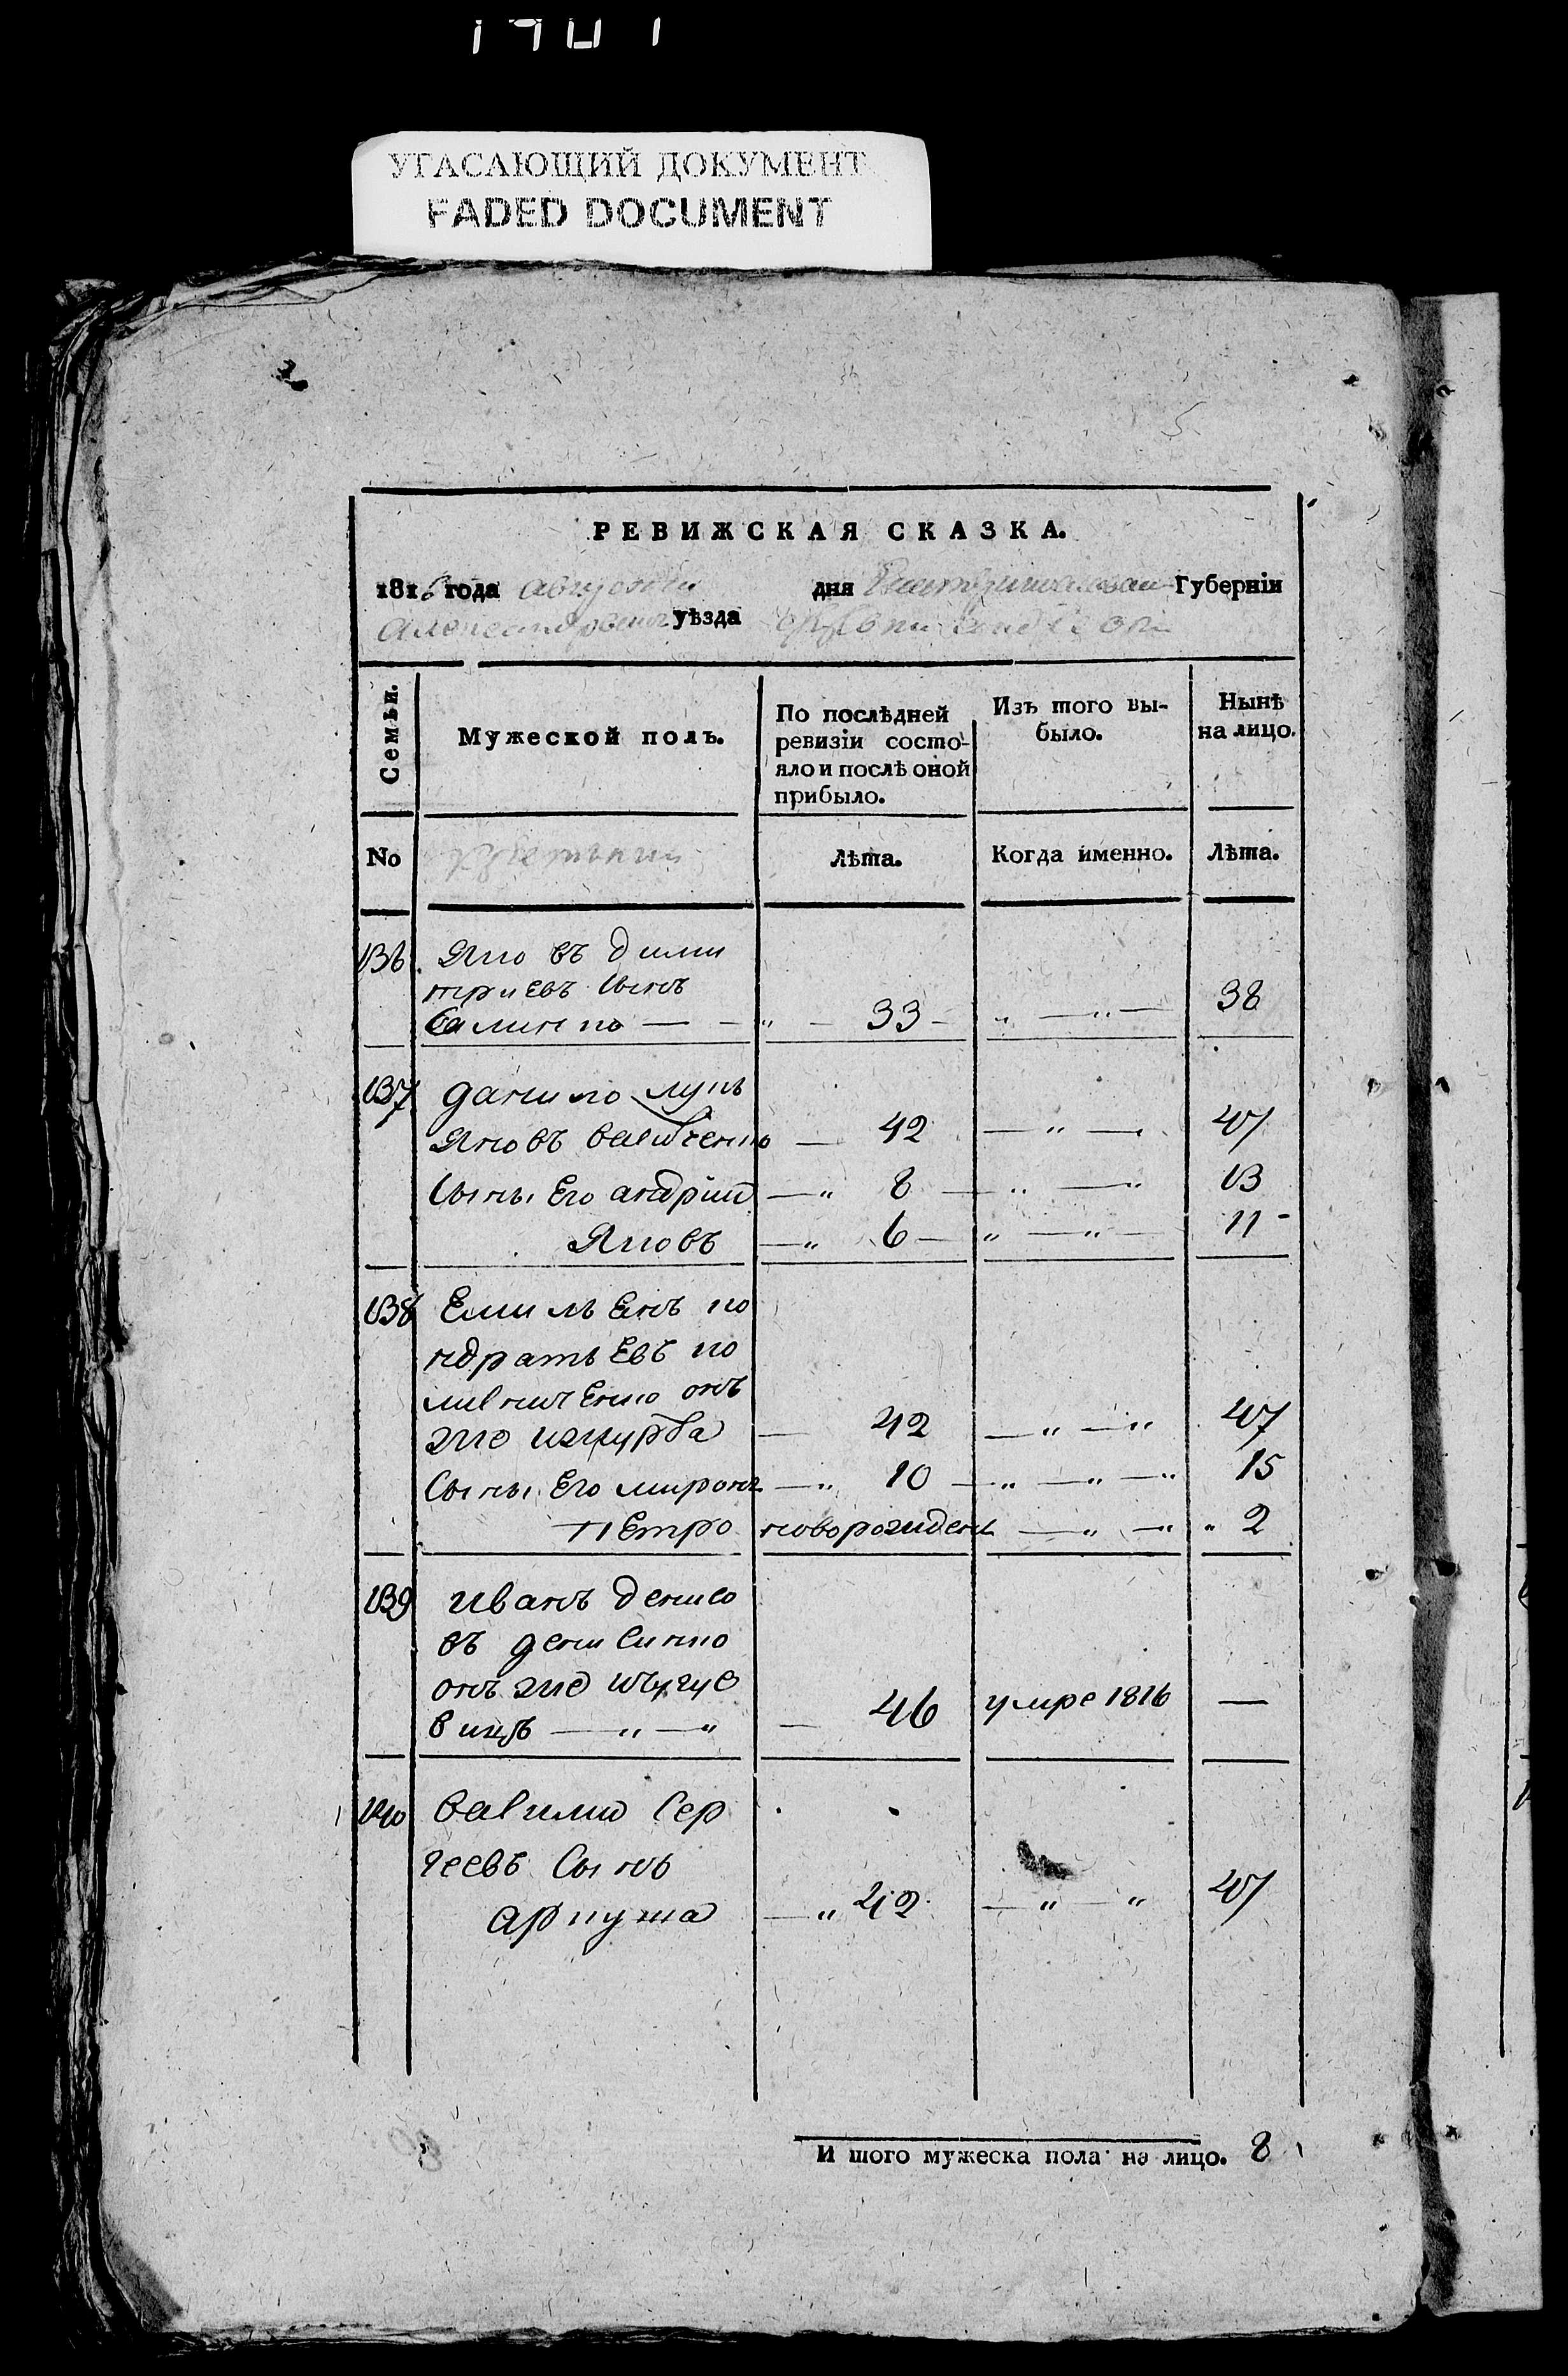 УГАСАЮЩИЙ ДОКУМЕНТ
FADED DOCUMENT
РЕВИЖСКАЯ СКАЗКА.
1816 года августа дня Екатеринославской Губерніи
Александровского уѣзда
Семьи. Мужеской полъ. По послѣдней ревизіи состояло и послѣ оной прибыло. Изъ того выбыло. Нынѣ на лицо.
No Лѣта. Когда именно. Лѣта.
136 Яковъ дими
триевъ сынъ
33 38
137 данило лукъ
яновъ 42 47
сыны Его андрій 8 13
Яковъ 6 11
138 Емильянъ ко
ндратьЕвъ ко
онъ
же 42 47
Сыны Его миронъ 10 15
пЕтро новорожденъ 2
139 Иванъ денисо
въ денисенко
онъ же
46 умре 1816 —
140 вавило Сер
геевъ Сынъ
42 47
И того мужеска пола на лицо. 8